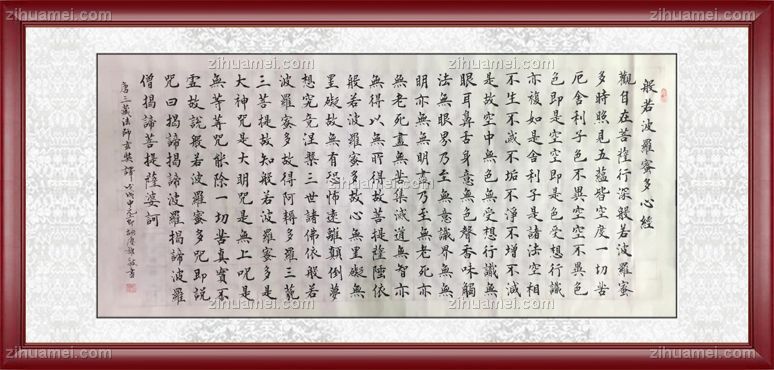 zihuamei.com zihuamei.com zihuamei.com
般若波羅蜜多心經
觀自在菩薩行深般若波羅蜜
多時照見五蘊皆空度一切苦
厄舍利子色不異空空不異色
色即是空空即是色受想行識
亦複如是舍利子是諸法空相
不生不滅不垢不淨不增不減
是故空中無色無受想行識無
眼耳鼻舌身意無色聲香味觸
法無眼界乃至無意識界無無
明亦無無明盡乃至無老死亦
無老死盡無苦集滅道無智亦
無得以無所得故菩提薩埵依
般若波羅蜜多故心無罣礙無
罣礙故無有恐怖遠離顛倒夢
想究竟涅槃三世諸佛依般若
波羅蜜多故得阿耨多羅三藐
三菩提故知般若波羅蜜多是
大神咒是大明咒是無上咒是
無等等咒能除一切苦真實不
虛故說般若波羅蜜多咒即說
咒曰揭諦揭諦波羅揭諦波羅
僧揭諦菩提薩婆訶
唐三藏法師玄奘譯 戊戌
zihuamei.com zihuamei.com zihuamei.com